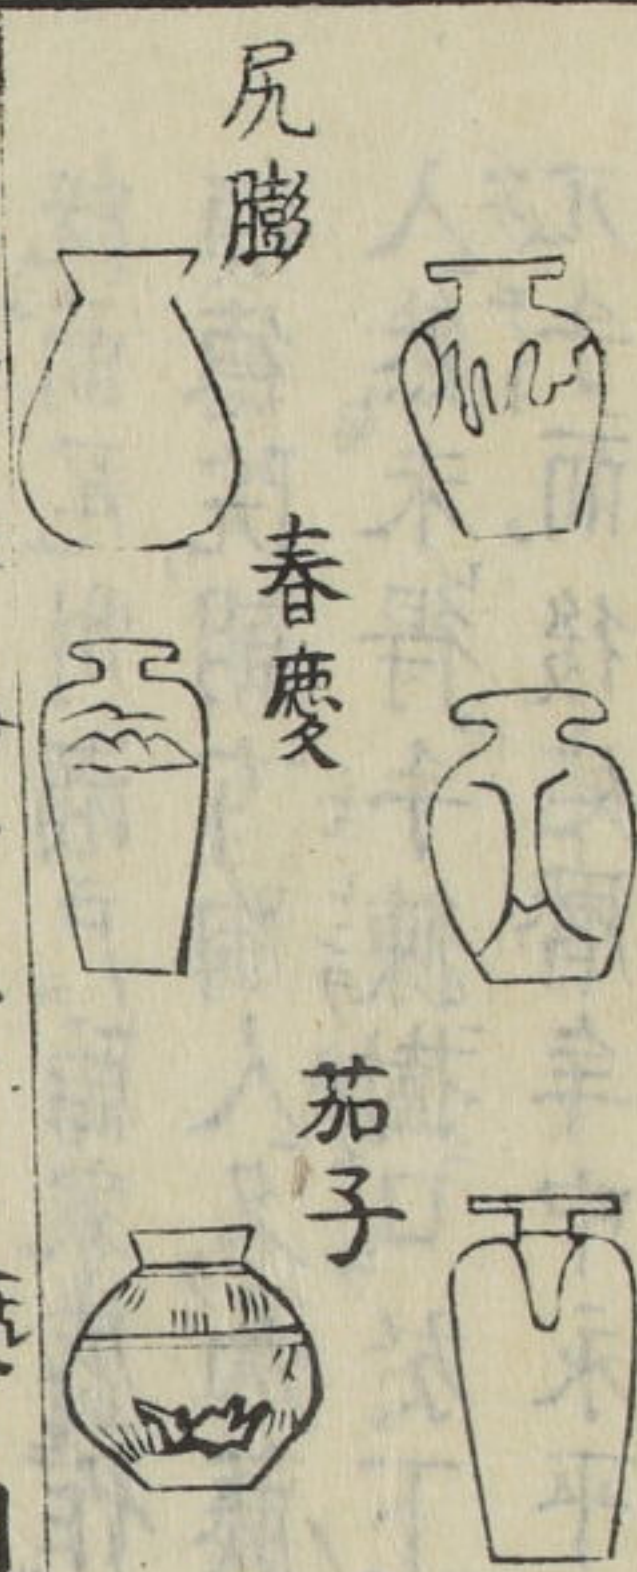 尻膨
春慶
茄子